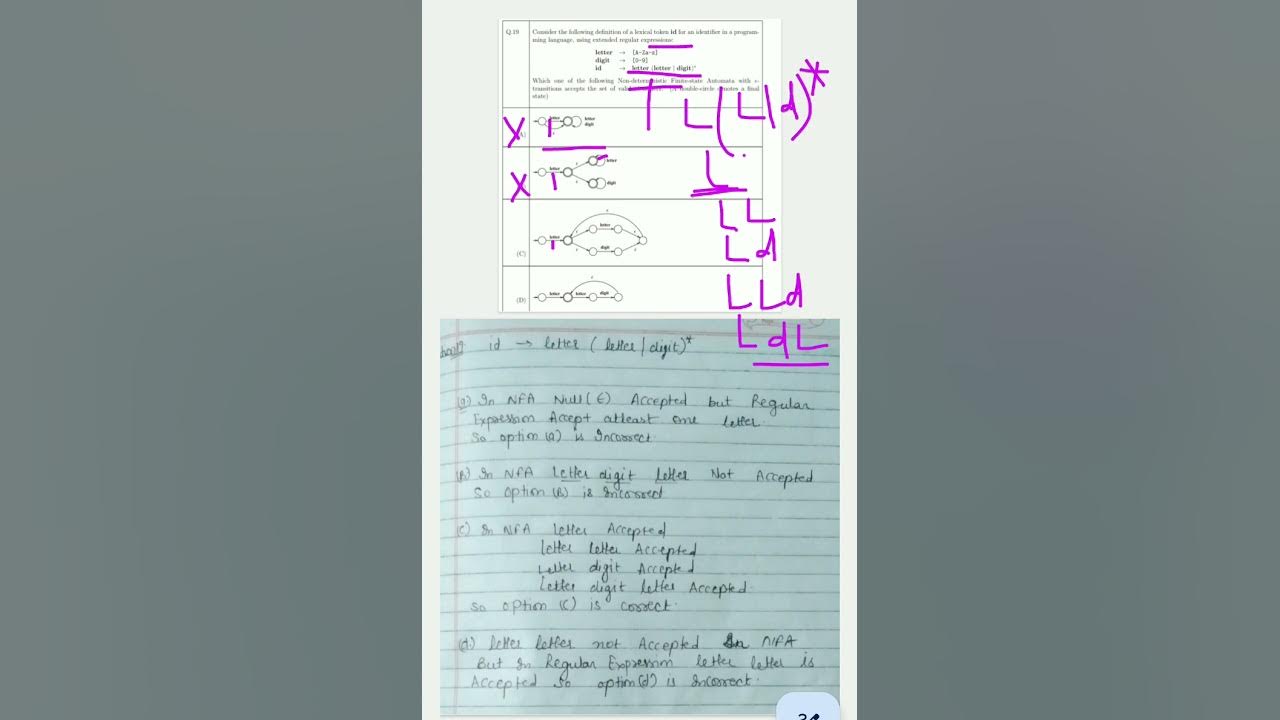 Q.19 Consider the following definition of a lexical token id for an identifier in a program-
ming language, using extended regular expressions:
letter → [A-Za-z]
digit → [0-9]
id → letter (letter | digit)*
Which one of the following Non-deterministic Finite-state Automata with ϵ-
transitions accepts the set of valid (A double-circle denotes a final
state)
L(L|d)*
X
letter
letter
digit
X
letter
ϵ
letter
ϵ
digit
L
LL
Ld
LLd
LdL
(C)
letter
ϵ
letter
digit
(D)
letter
letter
digit
ϵ
id → letter (letter | digit)*
(a) In NFA Null(ϵ) Accepted but Regular
Expression Accept atleast one letter.
So option (a) is Incorrect
(B) In NFA letter digit letter Not Accepted
So option (B) is Incorrect
(C) In NFA letter Accepted
letter letter Accepted
letter digit Accepted
letter digit letter Accepted.
So option (C) is correct.
(d) letter letter not Accepted In NFA
But In Regular Expression letter letter is
Accepted so option(d) is Incorrect.